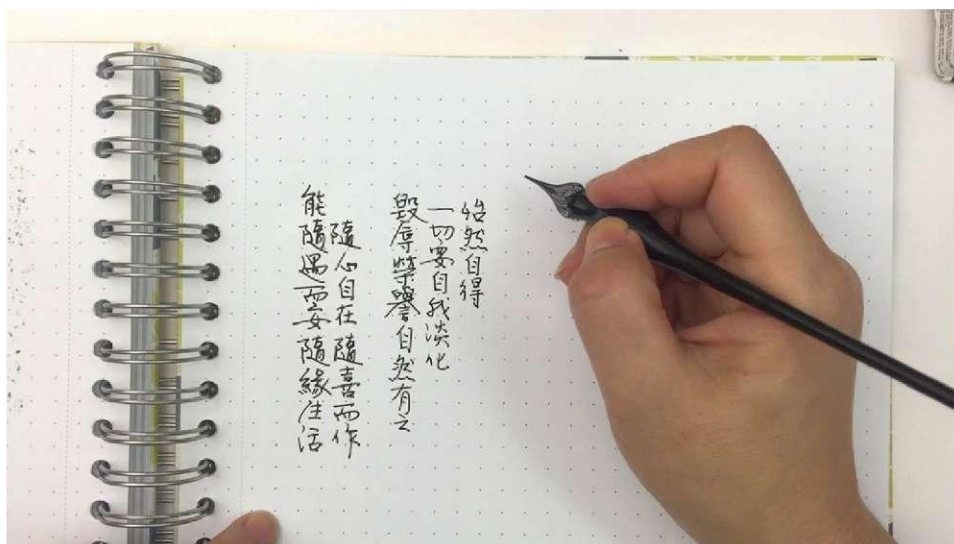 怡然自得
一切要自我淡化
毀辱榮譽自然有之
隨心自在 隨喜而作
能隨遇而安 隨緣生活